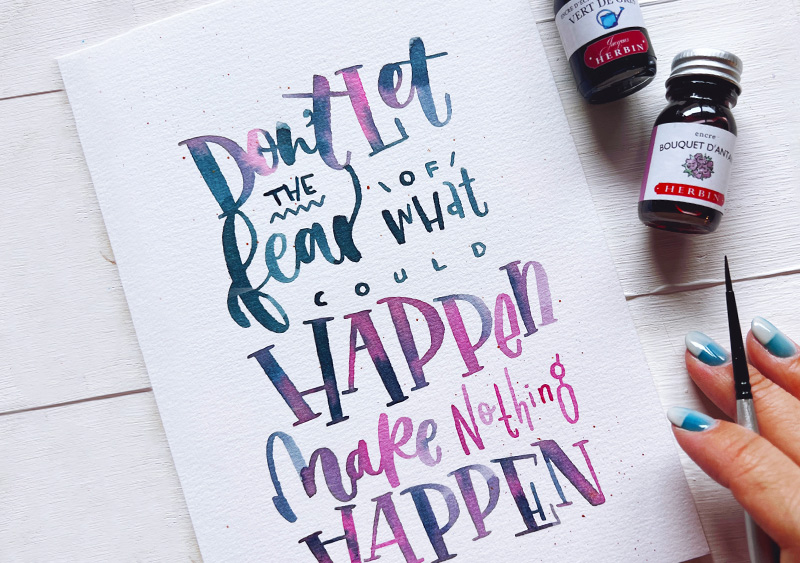 Don't Let
THE fear OF WHat
COULD
HAPPEn
make Nothing
HAPPEN
VERT DE GRIS
Jacques
HERBIN
encre
BOUQUET D'ANTAN
HERBIN